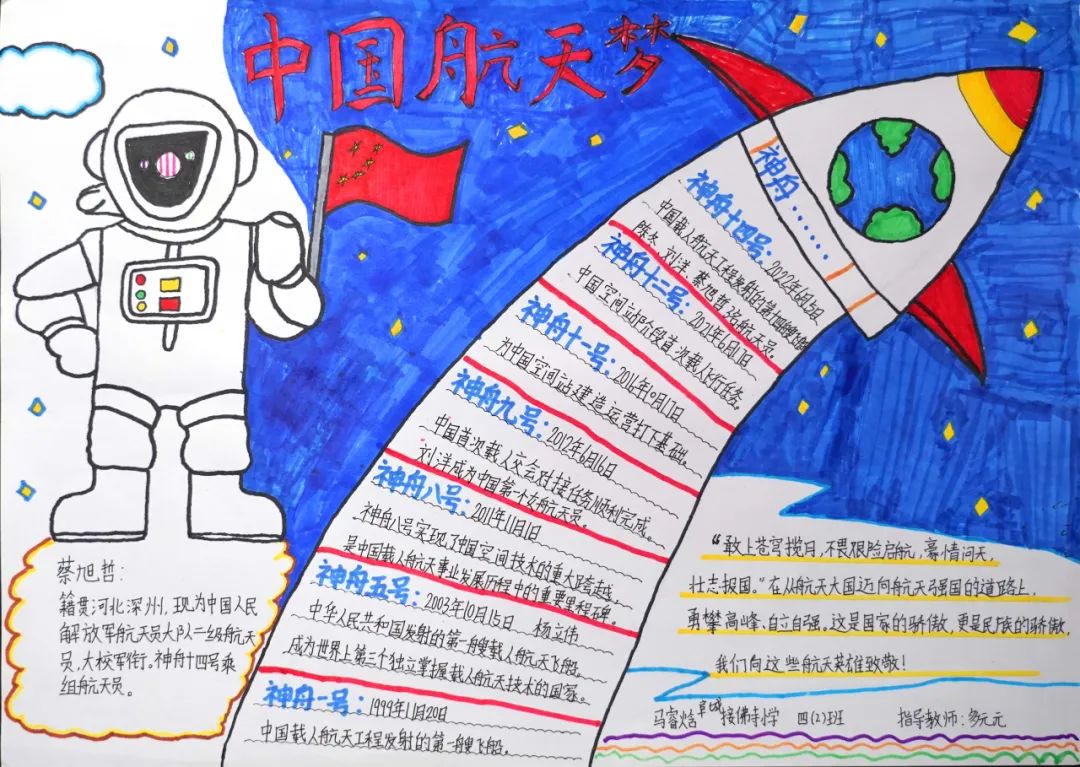 中国航天梦
神舟……
神舟十四号：2022年6月5日
中国载人航天工程发射的第十四艘飞船
陈冬、刘洋、蔡旭哲3名航天员。
神舟十二号：2021年6月17日
中国空间站阶段首次载人飞行任务。
神舟十一号：2016年10月17日
为中国空间站建造运营打下基础。
神舟九号：2012年6月16日
中国首次载人交会对接任务顺利完成。
刘洋成为中国第一个女航天员。
神舟八号：2011年11月1日
神舟八号实现了中国空间技术的重大跨越
是中国载人航天事业发展历程中的重要里程碑。
神舟五号：2003年10月15日 杨立伟
中华人民共和国发射的第一艘载人航天飞船。
成为世界上第三个独立掌握载人航天技术的国家。
神舟一号：1999年11月20日
中国载人航天工程发射的第一艘飞船。
蔡旭哲：
籍贯河北深州，现为中国人民
解放军航天员大队二级航天
员，大校军衔。神舟十四号乘
组航天员。
“敢上苍穹揽月，不畏艰险启航，豪情问天，
壮志报国。”在从航天大国迈向航天强国的道路上，
勇攀高峰、自立自强。这是国家的骄傲，更是民族的骄傲，
我们向这些航天英雄致敬！
马睿焓 阜城 接佛寺小学 四（2）班 指导教师：多元元